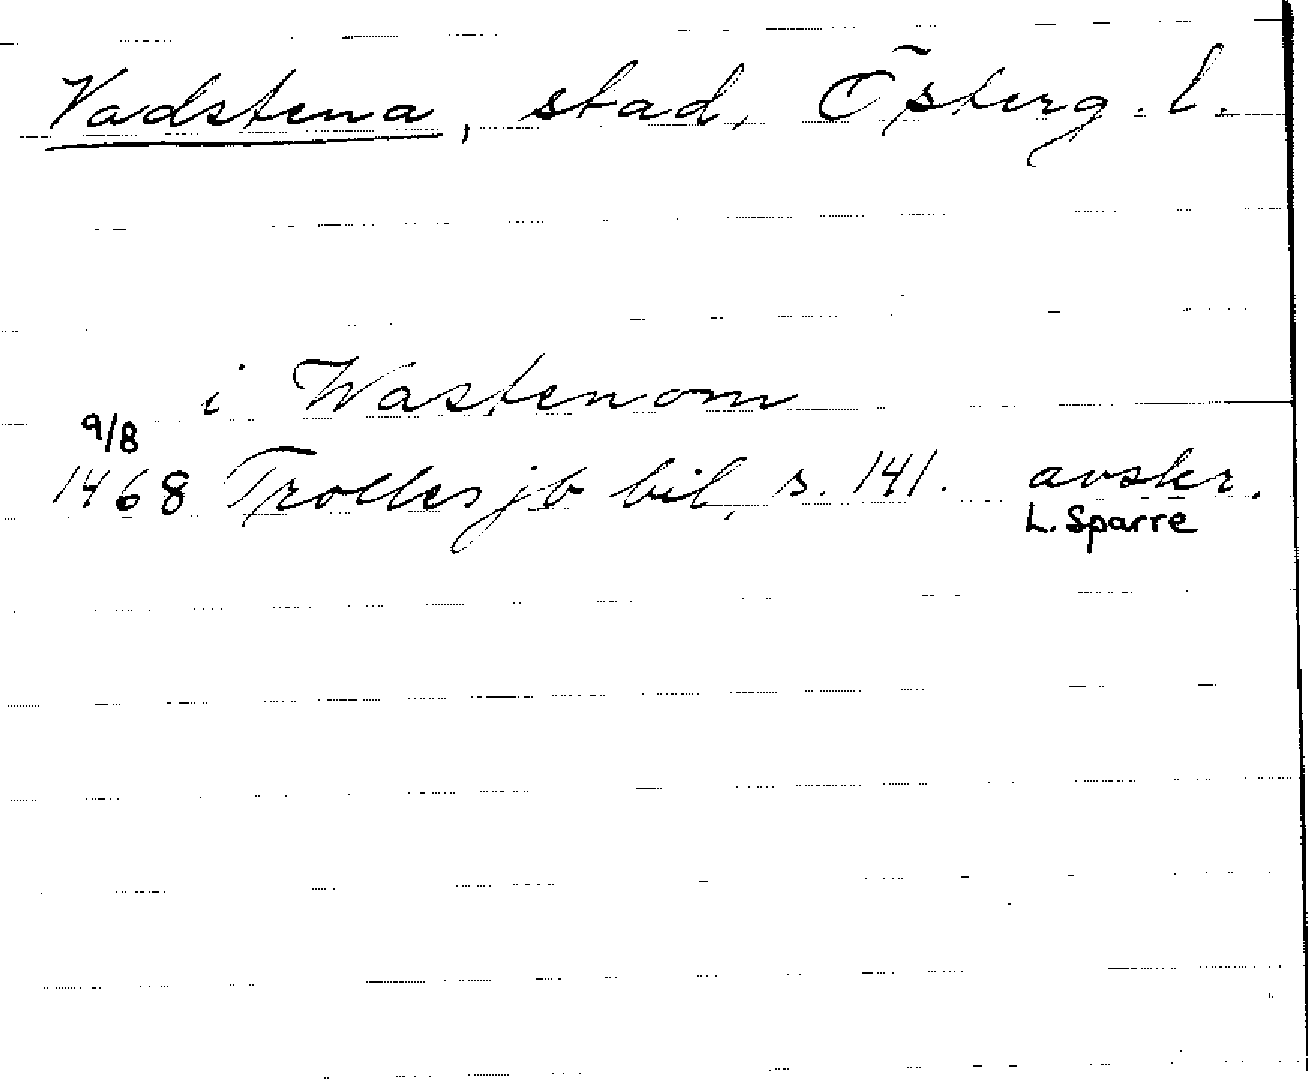 Vadstena, stad, Österg. l.
i Wastenom
9/8
1468 Trolles jb bil, s. 141. avskr.
L. Sparre